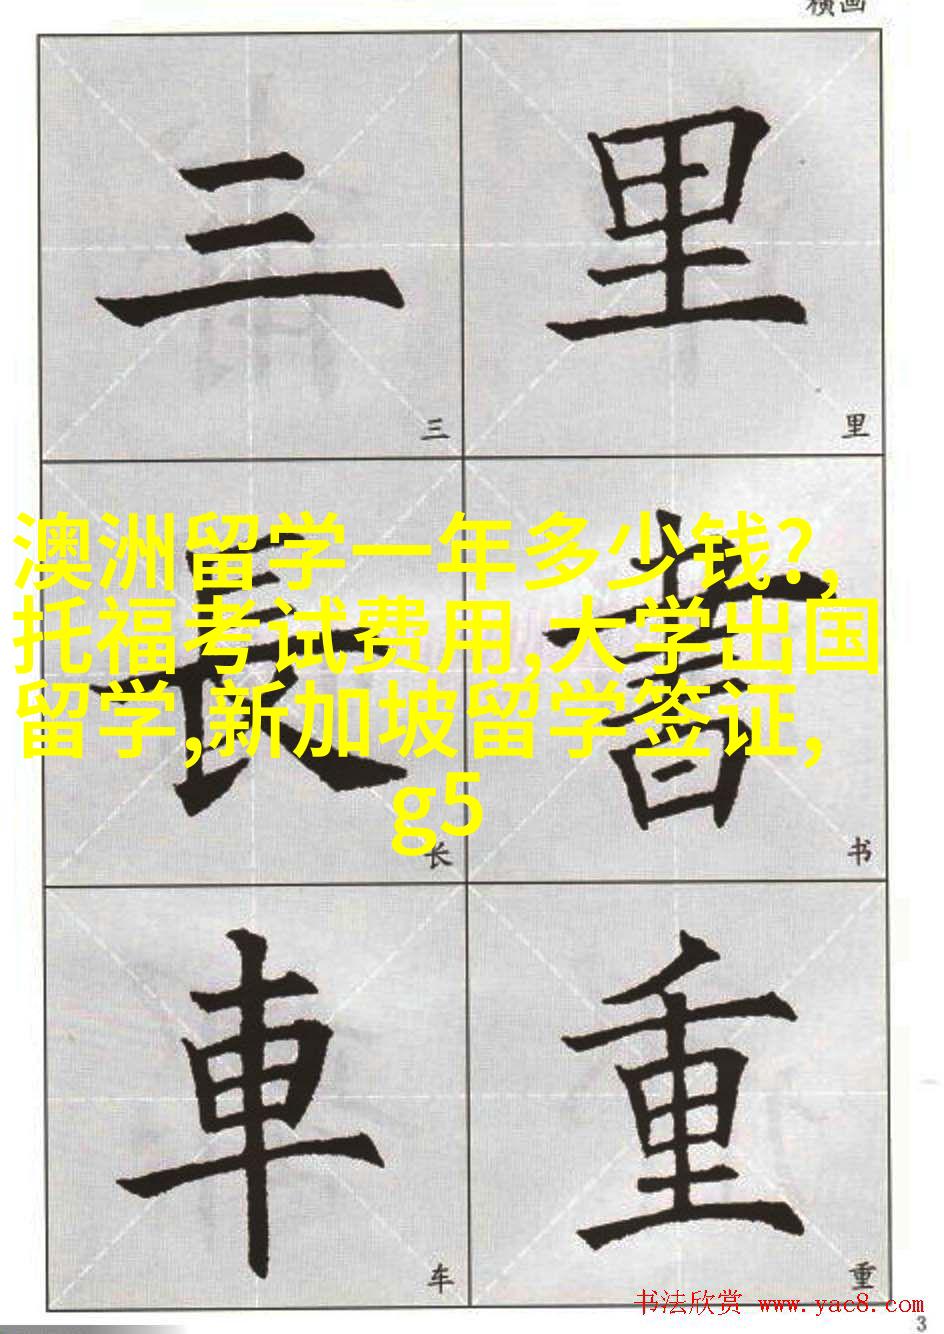 横画
三 里
三 里
澳洲留学一年多少钱?,
托福考试费用,大学出国
留学,新加坡留学签证,
g5
長 書
长 书
車 重
车 重
书法欣赏 www.yac8.com
3